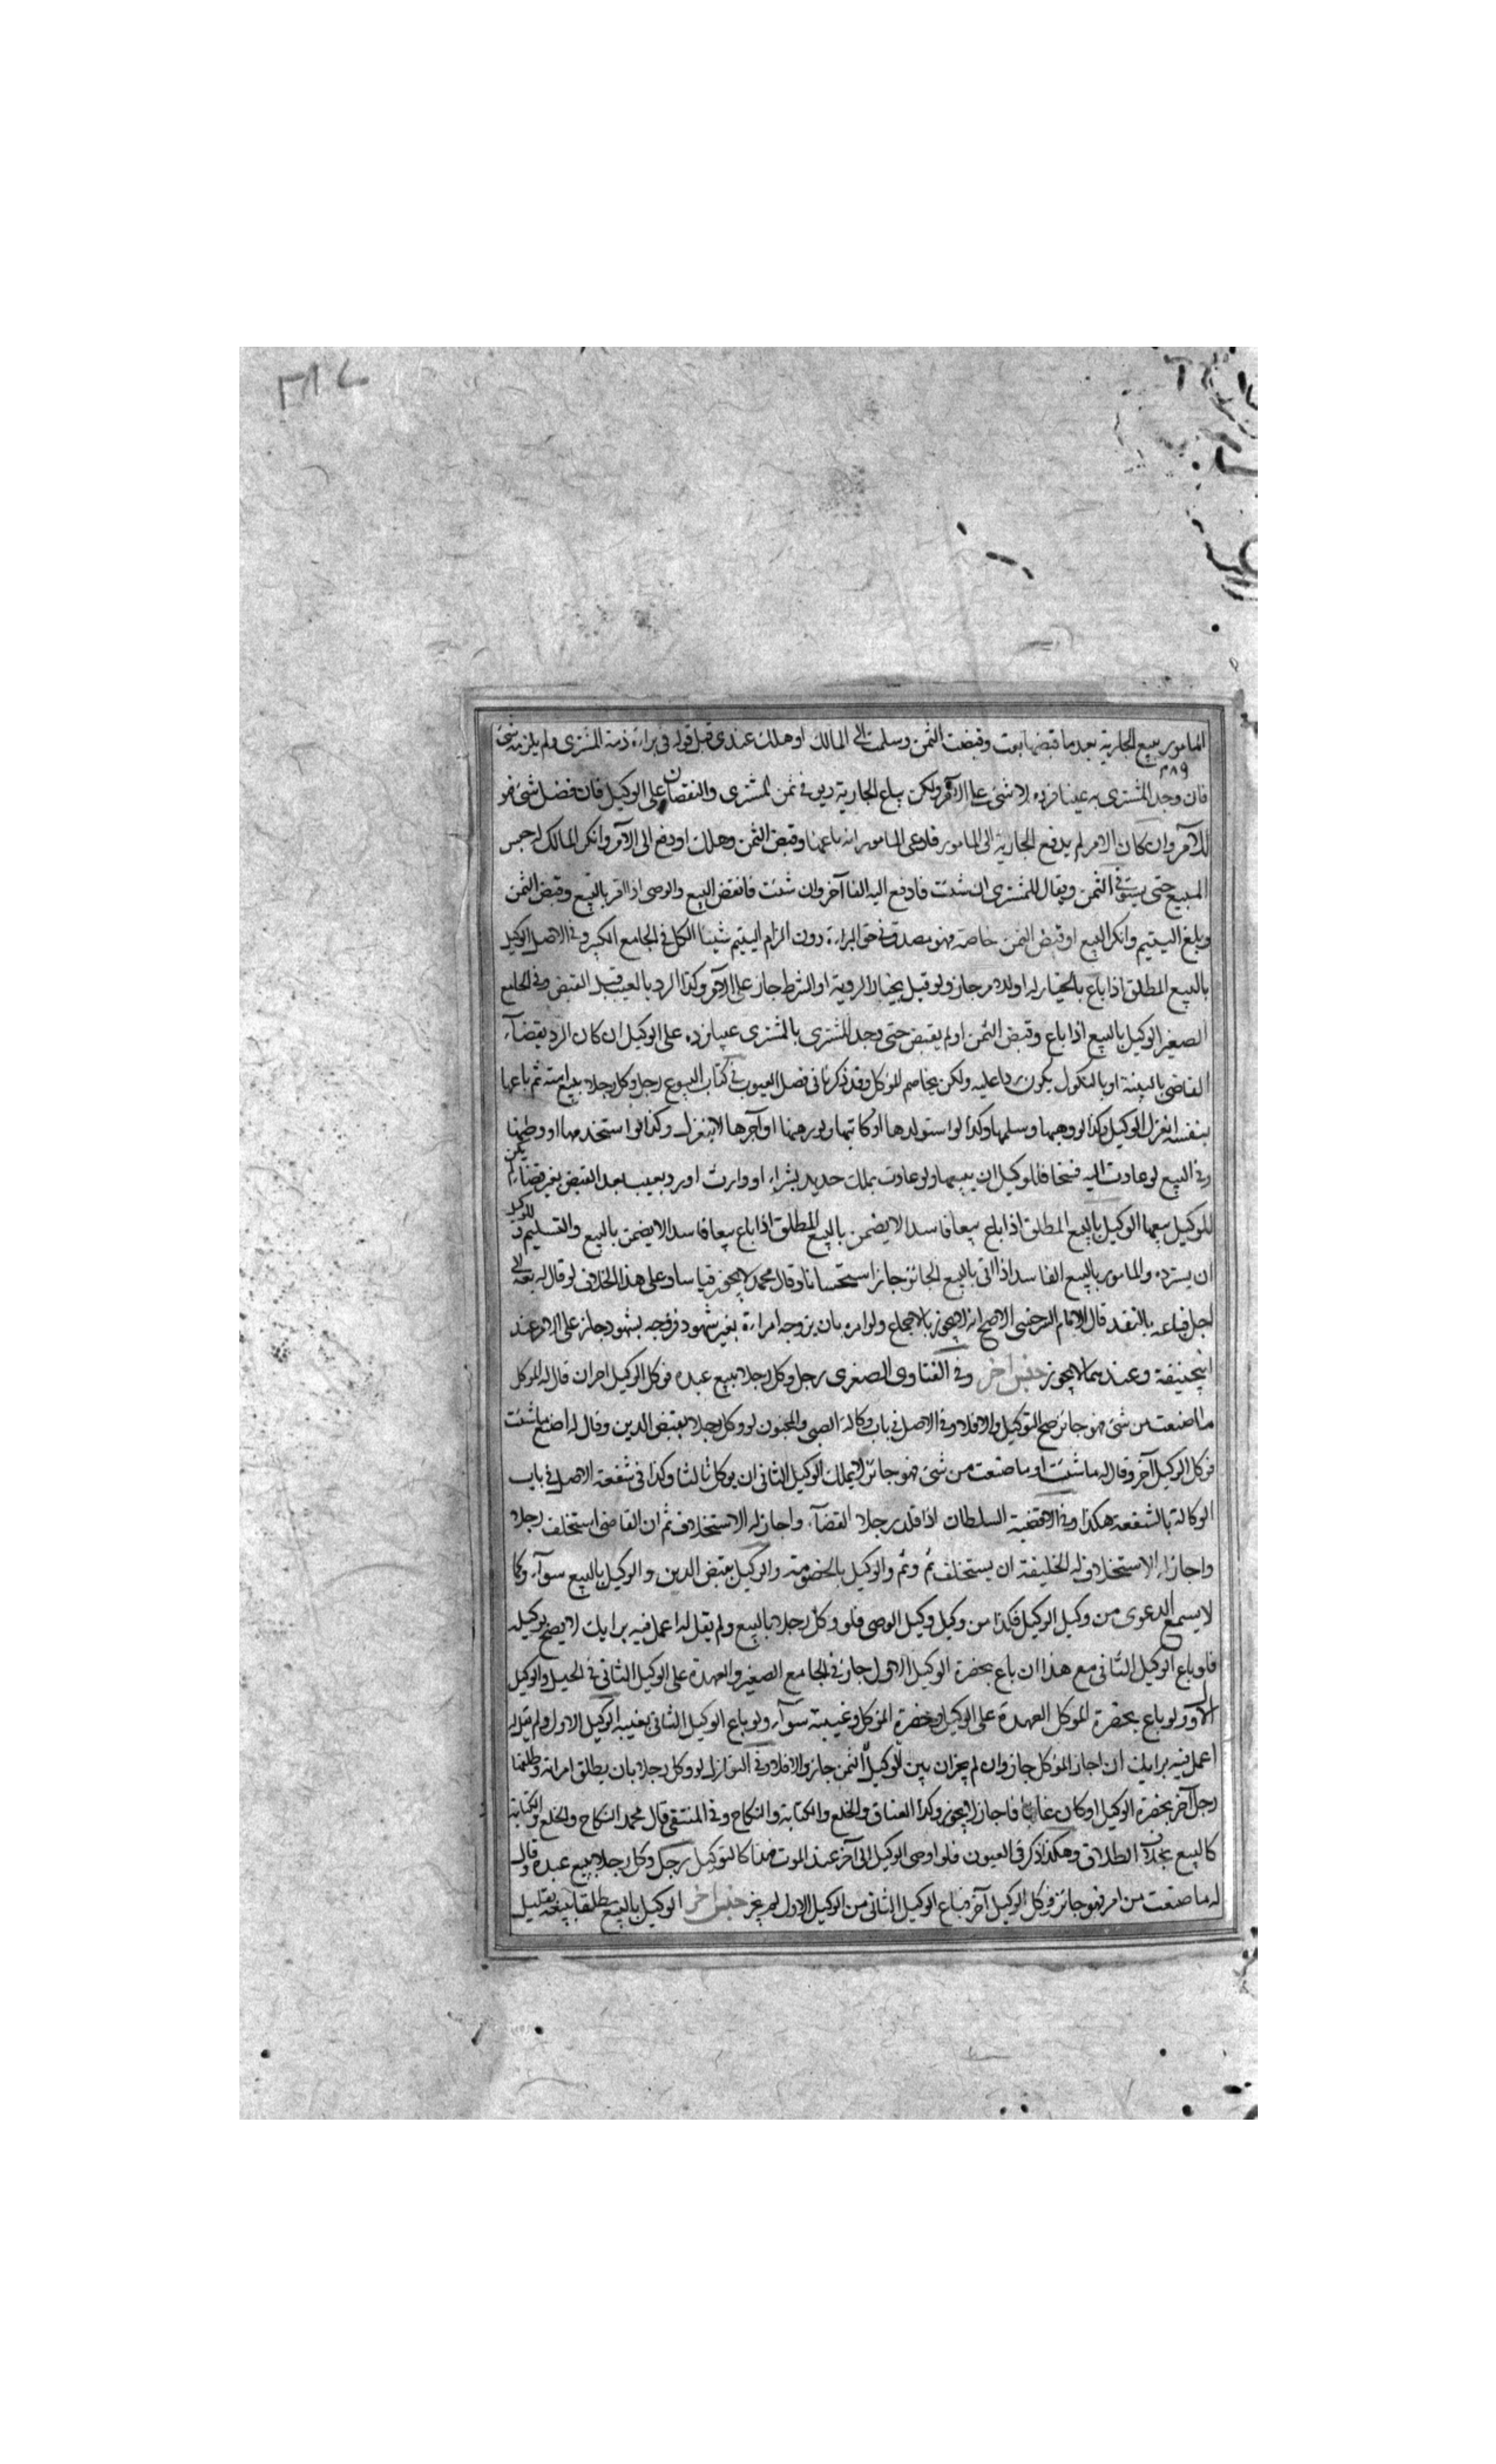 المامور ببيع الجارية بعد ما قبضها بعت وقبضت الثمن وسلمت الى المالك او هلك عندى قبل قوله فى براءة ذمة المشترى ولم يلزمه شئ
٣٨٩
فان وجد المشترى به عيبا فرده لا شئ على الآمر ولكن يباع الجارية ديو فى ثمن المشترى والنقصان على الوكيل فان فضل شئ فهو
للآمر وان كان الامر لم يدفع الجارية الى المامور فادعى المامور انه باعها وقبض الثمن وهلك او دفع الى الآمر وانكر المالك له حبس
المبيع حتى يستوفى الثمن ويقال للمشترى ان شئت فادفع اليه الفا آخر وان شئت فانقض البيع والوصى اذا اقر بالبيع وقبض الثمن
وبلغ اليتيم وانكر البيع او قبض الثمن خاصة فهو مصدق فى حق البراءة دون الزام اليتيم شيئا الكل فى الجامع الكبير وفى الاصل الوكيل
بالبيع المطلق اذا باع بالخيار له او للآمر جاز ولو قيل بخيار الروية او الشرط جاز على الآمر وكذا الرد بالعيب قبل القبض وفى الجامع
الصغير الوكيل بالبيع اذا باع وقبض الثمن او لم يقبض حتى وجد المشترى بالمشترى عيبا فرده على الوكيل ان كان الرد بقضاء
القاضى بالبينة او بالنكول يكون ردا عليه ولكن يخاصم الموكل وقد ذكرنا فى فصل العيوب فى كتاب البيوع رجل وكل رجلا ببيع امته ثم باعها
بنفسه انعزل الوكيل وكذا لو وهبها وسلمها وكذا لو استولدها او كاتبها ولو رهنها او آجرها لا ينعزل وكذا لو استخدمها او وطئها
وفى البيع لو عادت اليه فسخا فللوكيل ان يبيعها ولو عادت بملك جديد بشراء او وارث او رد بعيب بعد القبض بغير قضاء لم يكن
للوكيل بيعها الوكيل بالبيع المطلق اذا باع بيعا فاسدا لا يضمن بالبيع المطلق اذا باع بيعا فاسدا لا يضمن بالبيع والتسليم وللوكيل
ان يسترده والمامور بالبيع الفاسد اذا اتى بالبيع الجائز جاز استحسانا وقال محمد لا يجوز قياسا وعلى هذا الخلاف لو قال له بعه الى
اجل فباعه بالنقد قال الامام السرخسى الاصح انه لا يجوز بالاجماع ولو امره بان يزوجه امراءة بغير شهود فزوجه بشهود جاز على الامر عند
ابيحنيفة وعندهما لا يجوز جنس آخر وفى الفتاوى الصغرى رجل وكل رجلا ببيع عبده فوكل الوكيل اخر ان قال له الموكل
ما صنعت من شئ فهو جائز صح التوكيل والا فلا وفى الاصل فى باب وكالة الصبى والمجنون لو وكل رجلا بقبض الدين وقال له اصنع ما شئت
فوكل الوكيل آخر وقال له ما شئت او ما صنعت من شئ فهو جائز لا يملك الوكيل الثانى ان يوكل ثالثا وكذا فى شفعة الاصل فى باب
الوكالة بالشفعة هكذا وفى الاقضية السلطان اذا قلد رجلا القضاء واجاز له الاستخلاف ثم ان القاضى استخلف رجلا
واجاز له الاستخلاف له الخليفة ان يستخلف ثم وثم والوكيل بالخصومة والوكيل بقبض الدين والوكيل بالبيع سواء وكما
لا يسمع الدعوى من وكيل الوكيل فكذا من وكيل وكيل الوصى فلو وكل رجلا بالبيع ولم يقل له اعمل فيه برايك لا يصح توكيله
فلو باع الوكيل الثانى مع هذا ان باع بحضرة الوكيل الاول جاز فى الجامع الصغير والعهدة على الوكيل الثانى فى الحيل والوكيل
الاول ولو باع بحضرة الموكل العهدة على الوكيل وحضرة الموكل وغيبته سواء ولو باع الوكيل الثانى بغيبة الوكيل الاول ولم يقل له
اعمل فيه برايك ان اجاز الموكل جاز وان لم يجز ان بين للوكيل الثمن جاز والا فلا وفى النوازل لو وكل رجلا بان يطلق امراته وطلقها
رجل آخر بحضرة الوكيل او كان غائبا فاجاز لا يجوز وكذا العتاق والخلع والكتابة والنكاح وفى المنتقى قال محمد النكاح والخلع والكتابة
كالبيع بخلاف الطلاق وهكذا ذكر فى العيون فلو اوصى الوكيل الى آخر عند الموت فهذا كالتوكيل رجل وكل رجلا ببيع عبده وقال
له ما صنعت من امر فهو جائز فوكل الوكيل آخر فباع الوكيل الثانى من الوكيل الاول لم يجز جنس آخر الوكيل بالبيع مطلقا بيعه بقليل